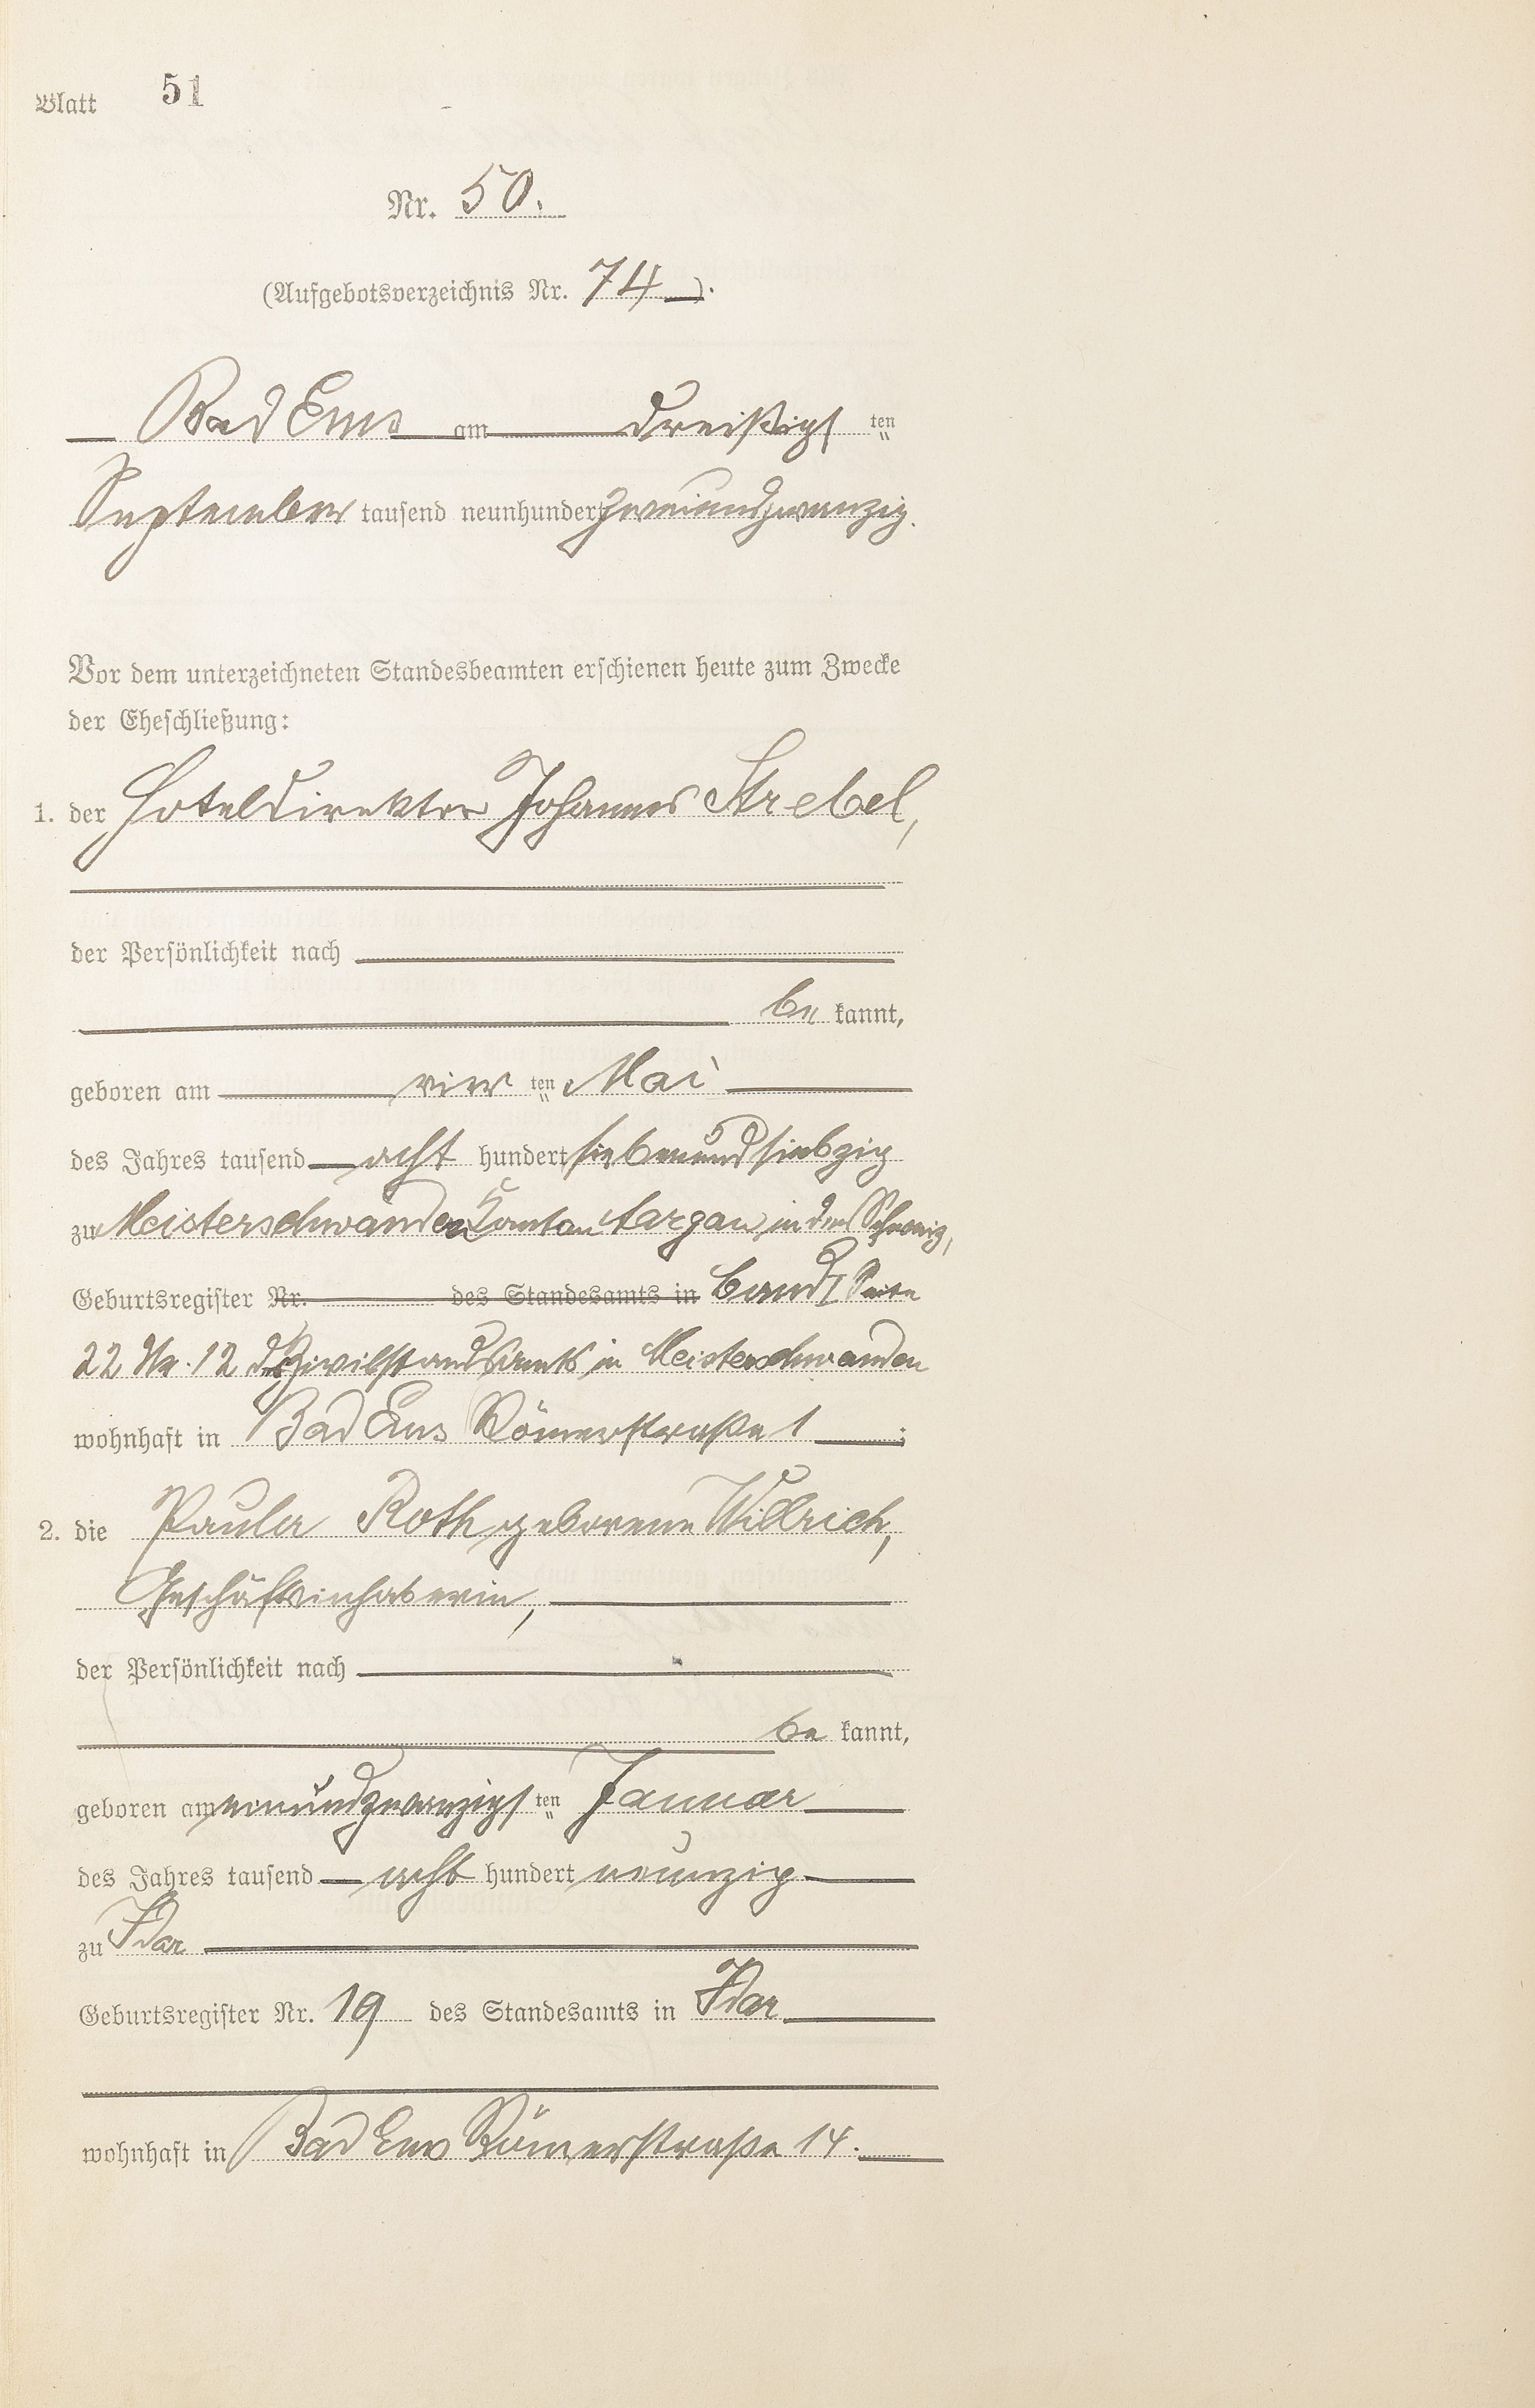 Blatt 51
Nr. 50.
(Aufgebotsverzeichnis Nr. 74).
Bad Ems am dreißigsten
September tausend neunhundert zweiundzwanzig.
Vor dem unterzeichneten Standesbeamten erschienen heute zum Zwecke
der Eheschließung:
1. der Hoteldirektor Johannes Strebel,
der Persönlichkeit nach
be kannt,
geboren am vier ten Mai
des Jahres tausend acht hundert siebenundsiebzig
zu Meisterschwanden Kanton Aargau in der Schweiz,
Geburtsregister Nr. des Standesamts in Band I Seite
22 Nr. 12 des Zivilstandsamts in Meisterschwanden
wohnhaft in Bad Ems Römerstraße 1;
2. die Paula Roth geborene Wildrich,
Geschäftsinhaberin,
der Persönlichkeit nach
be kannt,
geboren am einundzwanzigsten Januar
des Jahres tausend acht hundert neunzig
zu Idar
Geburtsregister Nr. 19 des Standesamts in Idar
wohnhaft in Bad Ems Römerstraße 14.